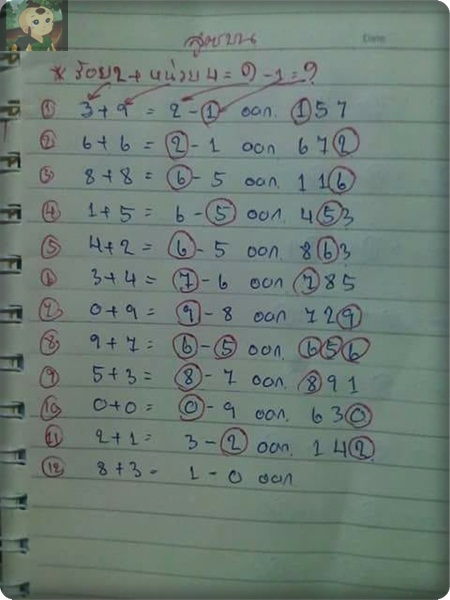 สูตรบน
Date
* ร้อย 2 + หน่วย 4 = ๑ - 1 = ?
① 3 + 9 = 2 - 1 ออก. 1 5 7
② 6 + 6 = 2 - 1 ออก 6 7 2
③ 8 + 8 = 6 - 5 ออก. 1 1 6
④ 1 + 5 = 6 - 5 ออก. 4 5 3
⑤ 4 + 2 = 6 - 5 ออก 8 6 3
⑥ 3 + 4 = 7 - 6 ออก 7 8 5
⑦ 0 + 9 = 9 - 8 ออก 7 2 9
⑧ 9 + 7 = 6 - 5 ออก. 6 5 6
⑨ 5 + 3 = 8 - 7 ออก. 8 9 1
⑩ 0 + 0 = 0 - 9 ออก. 6 3 0
⑪ 2 + 1 = 3 - 2 ออก. 1 4 2
⑫ 8 + 3 - 1 - 0 ออก